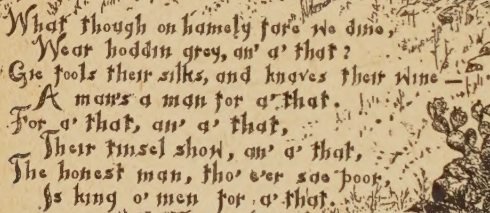 What though on hamely fare we dine,
Wear hoddin grey, an' a' that?
Gie fools their silks, and knaves their wine—
A man's a man for a' that.
For a' that, an' a' that,
Their tinsel show, an' a' that,
The honest man, tho' e'er sae poor,
Is king o' men for a' that.